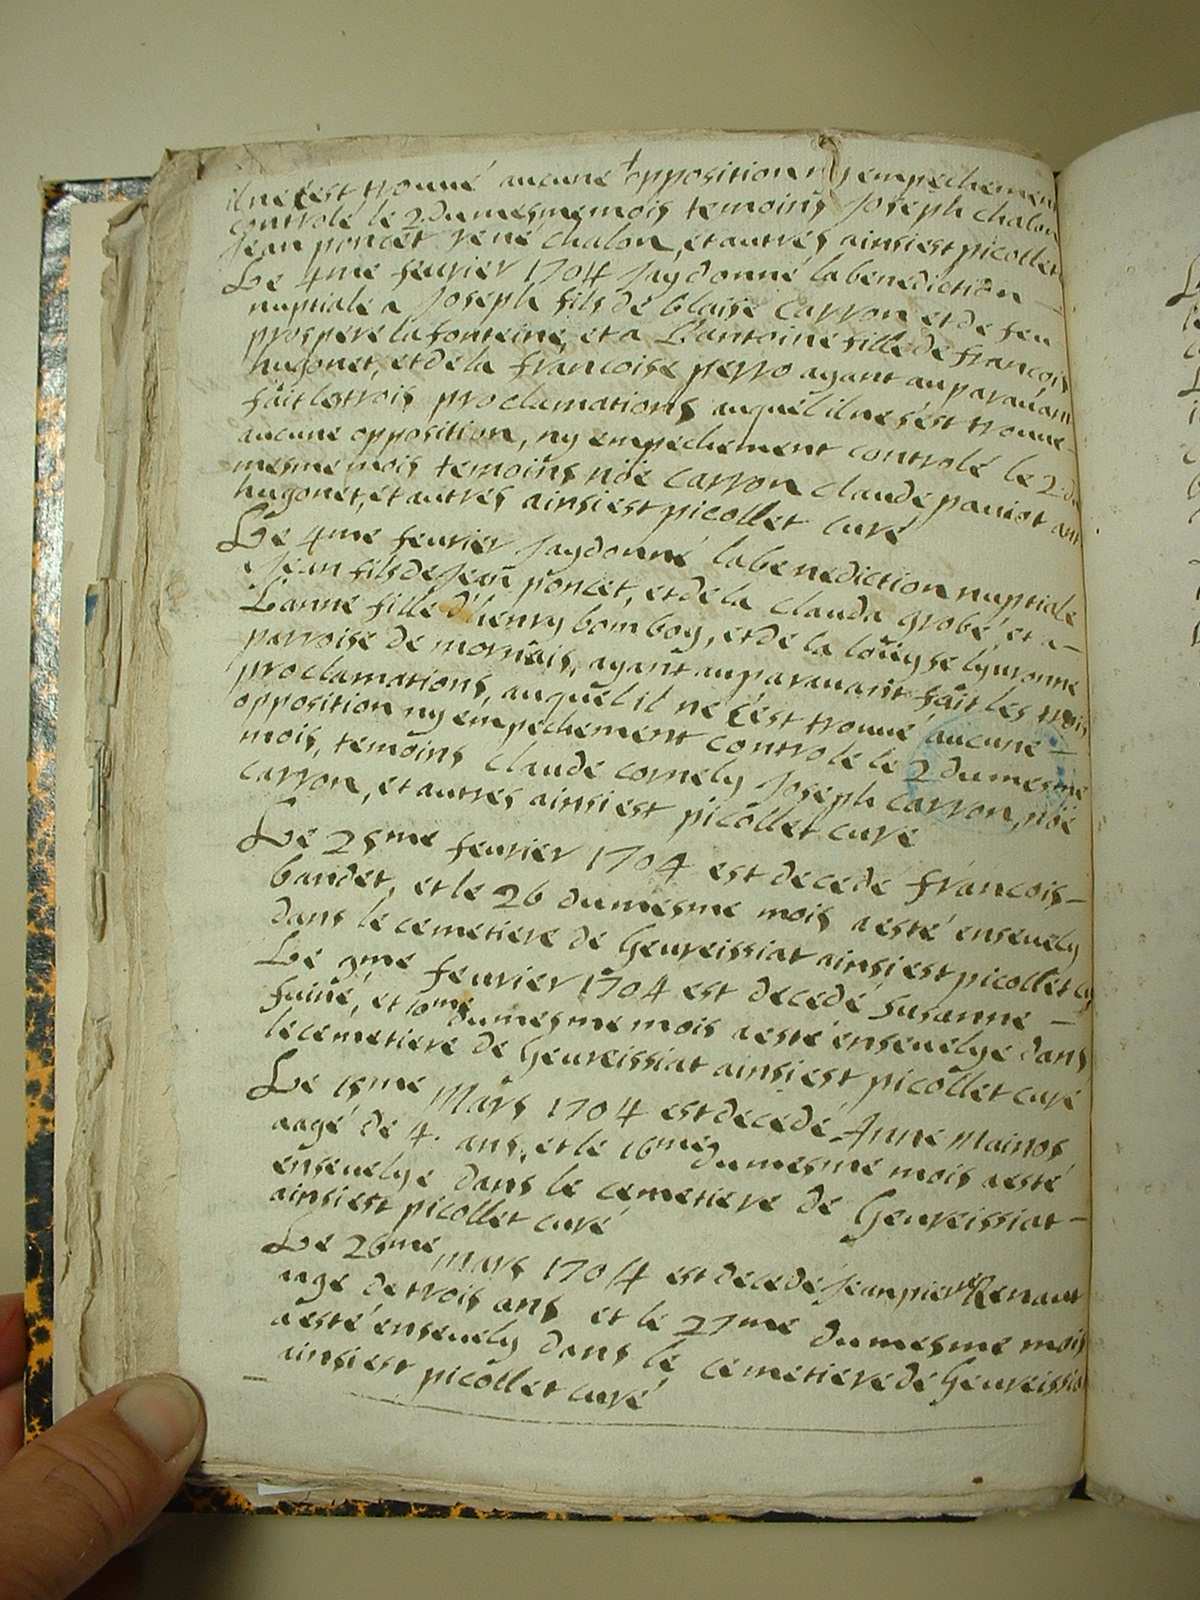 il ne s'est trouué aucune opposition ny empechement
controlé le 2 du mesme mois temoins Joseph chalon
Jean poncet rené chalon, et autres ainsi est picollet
Le 4me feurier 1704 Jay donné la benediction
nuptiale a Joseph fils de blaise Carron et de feu
prospere lafonteine, et a Lantoine fille de francois
hugonet, et de la francoise perro ayant auparauant
fait les trois proclamations auquel il ne s'est trouué
aucune opposition, ny empechement controlé le 2 du
mesme mois temoins noë Carron Claude pauiot ant
hugonet, et autres ainsi est picollet curé
Le 4me feurier Jay donné la benediction nuptiale
a Jean fils de Jean poncet, et de la clauda grobé, et a
Lanne fille d'henry bomboy, et de la louyse lyuronne
parroise de mornais, ayant auparauant fait les trois
proclamations, auquel il ne s'est trouué aucune
opposition ny empechement controlé le 2 du mesme
mois, temoins claude cornely Joseph Carron, noë
carron, et autres ainsi est picollet curé
Le 25me feurier 1704 est decedé francois
bandet, et le 26 du mesme mois a esté enseuely
dans le cemetiere de Geureissiat ainsi est picollet cu
Le 9me feurier 1704 est decedé Susanne
fuiné, et 10me du mesme mois a esté enseuelye dans
le cemetiere de Geureissiat ainsi est picollet curé
Le 15me Mars 1704 est decedé Anne Mainos
aagé de 4. ans, et le 16me du mesme mois a esté
enseuelye dans le cemetiere de Geureissiat
ainsi est picollet curé
Le 26me mars 1704 est decedé Jean pierre Renaut
agé de trois ans et le 27me du mesme mois
a esté enseuely dans le cemetiere de Geureissia
ainsi est picollet curé